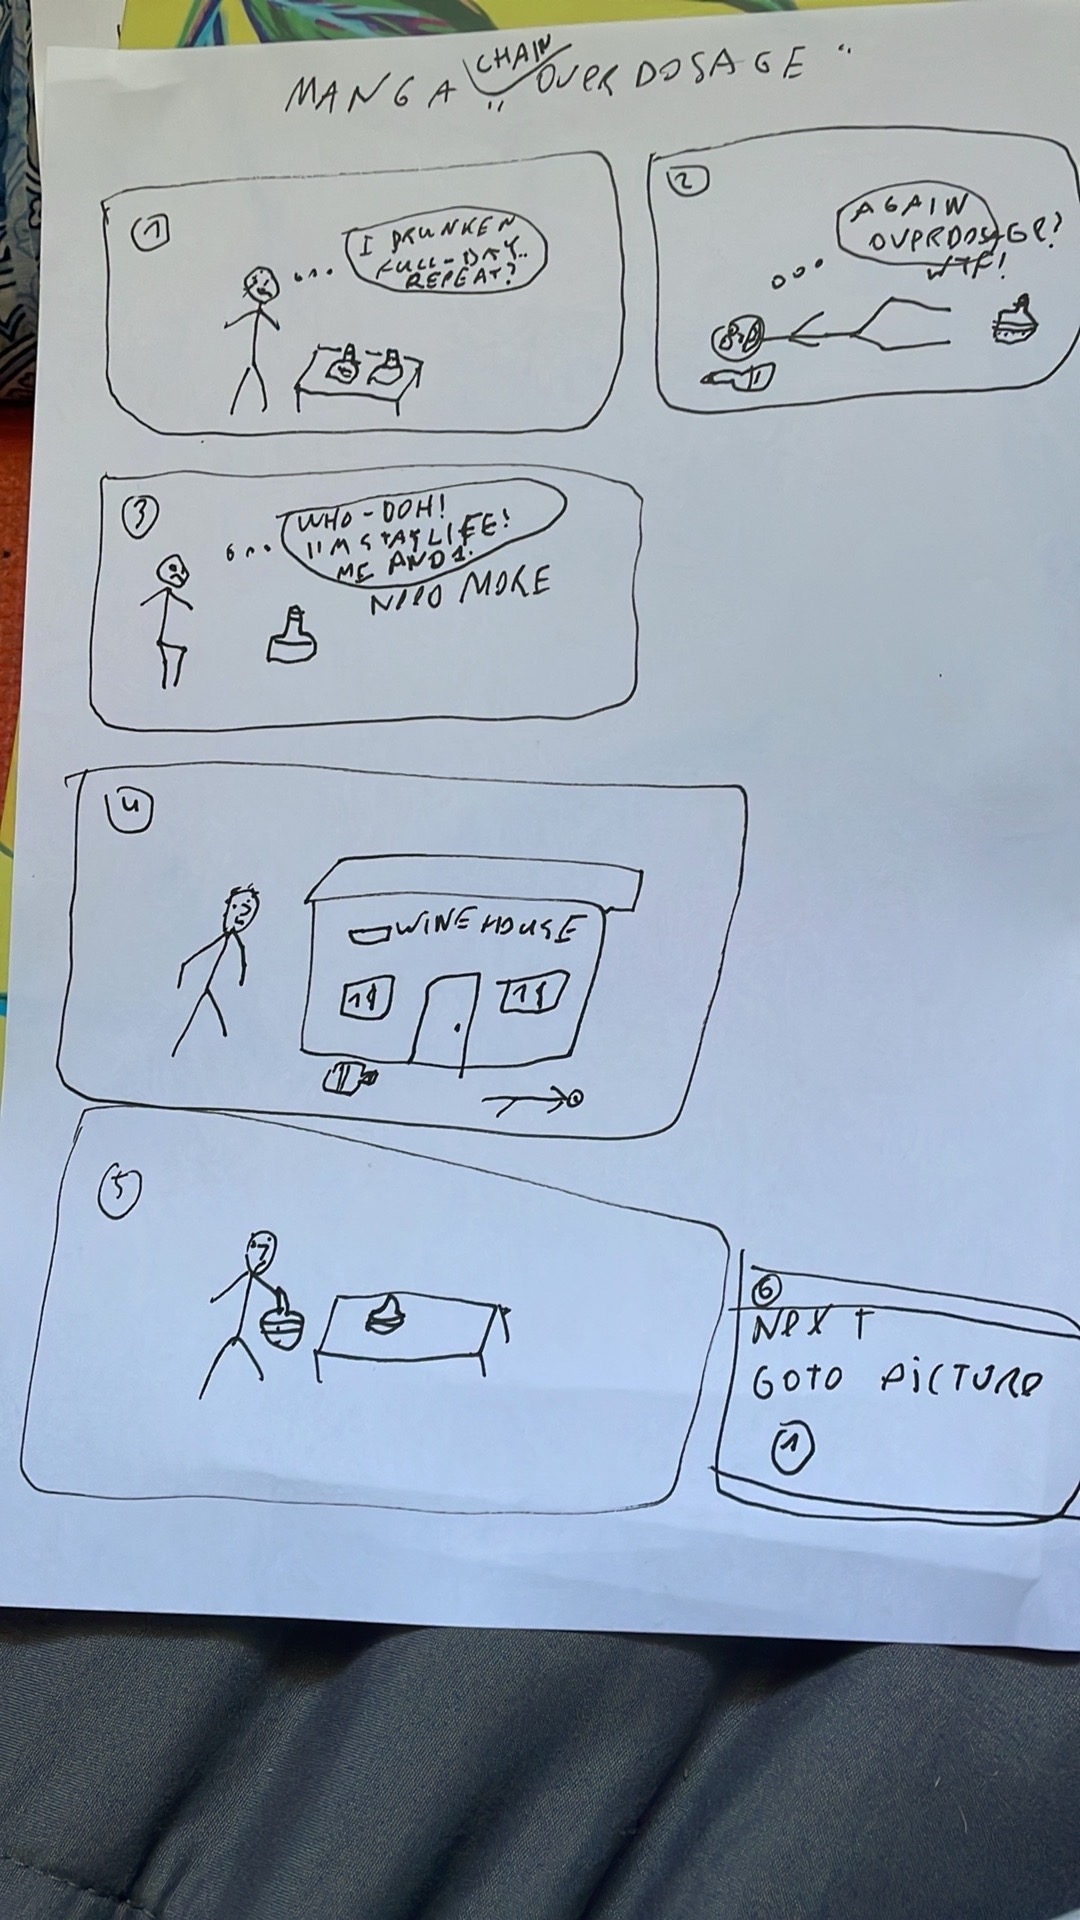 MANGA "CHAIN OVERDOSAGE"
1
I DRUNKEN
FULL-DAY..
REPEAT?
2
AGAIN
OVERDOSAGE?
WTF!
3
WHO-DOH!
I'M STAY LIFE!
ME AND 1.
NEED MORE
4
WINEHOUSE
1$
1$
5
6
NEXT
GOTO PICTURE
1